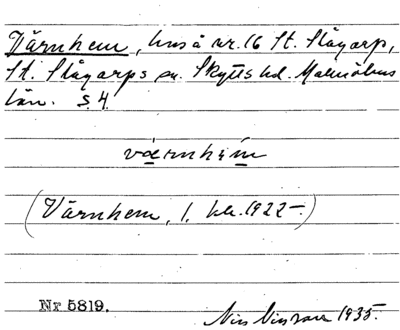 Värnhem, hus å nr. 16 St. Slågarp,
St. Slågarps sn. Skytts hd. Malmöhus
län. S. 4.
värnhäm
(Värnhem, J. kb. 1922-.)
Nr 5819.
1935.